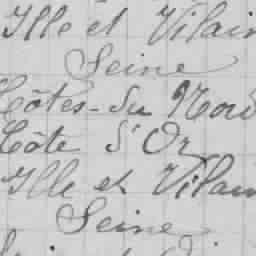 Ille et Vilain
Seine
Côtes-du Nord
Côte d'Or
Ille et Vilain
Seine